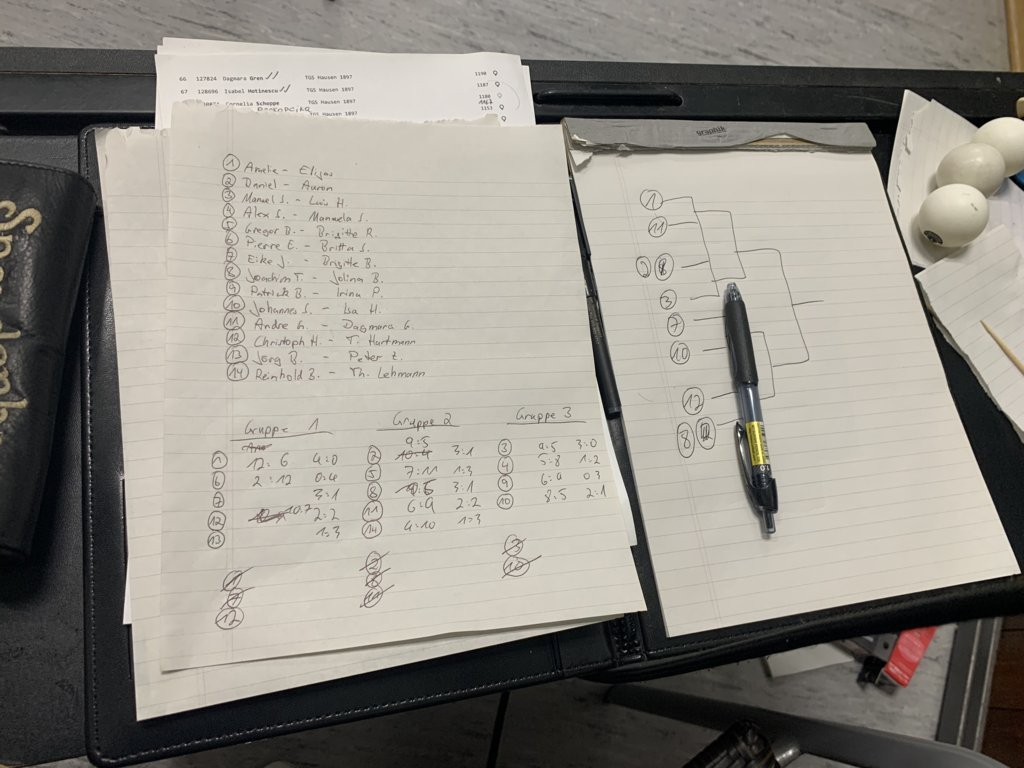 66 127824 Dagmara Gren TGS Hausen 1897 1190
67 128696 Isabel Motinescu TGS Hausen 1897 1187
Cornelia Schoppe TGS Hausen 1897 1180
TGS Hausen 1897 1153
1 Amelie - Elijas
2 Daniel - Aaron
3 Manuel S. - Luis H.
4 Alex S. - Manuela S.
5 Gregor B. - Brigitte R.
6 Pierre E. - Britta S.
7 Eike J. - Brigitte B.
8 Joachim T. - Jolina B.
9 Patrick B. - Irina P.
10 Johannes S. - Isa H.
11 Andre G. - Dagmara G.
12 Christoph H. - T. Hartmann
13 Jörg B. - Peter Z.
14 Reinhold B. - Th. Lehmann
Gruppe 1
1 12:6 4:0
6 2:12 0:4
7 3:1
12 10:7 2:2
13 1:3
1
7
12
Gruppe 2
9:5
2 10:4 3:1
5 7:11 1:3
8 3:1
11 6:9 2:2
14 4:10 1:3
2
8
11
Gruppe 3
3 9:5 3:0
4 5:8 1:2
9 6:9 0:3
10 8:5 2:1
3
10
1
11
2 8
3
7
10
12
8